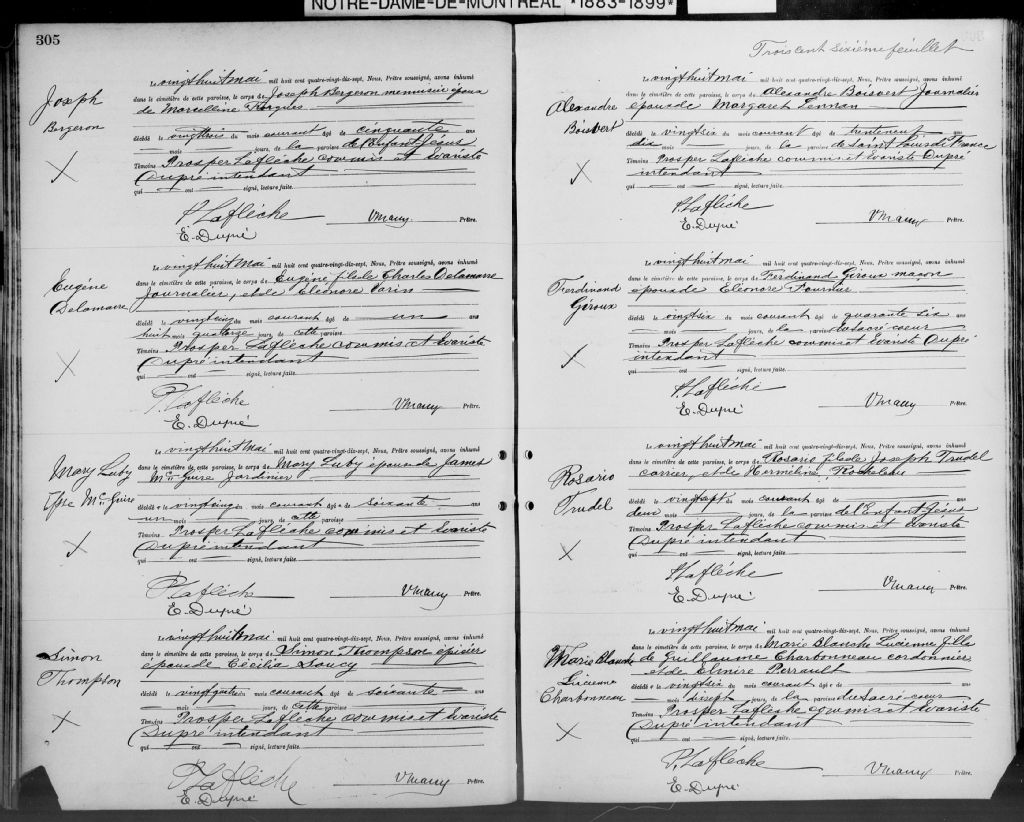 NOTRE-DAME-DE-MONTREAL *1883-1899*
305
Joseph
Bergeron
Le vingt huit mai mil huit cent quatre-vingt-dix-sept, Nous, Prêtre soussigné, avons inhumé
dans le cimetière de cette paroisse, le corps de Joseph Bergeron menuisier époux
de Marcelline
décédé le vingttrois du mois courant âgé de cinquante ans
mois jours, de la paroisse de l'Enfant Jésus
Témoins Prosper Laflèche commis et Evariste
Dupré intendant
qui ont signé, lecture faite.
P. Laflèche
E. Dupré
Prêtre.
Eugène
Delamarre
Le vingt huit mai mil huit cent quatre-vingt-dix-sept, Nous, Prêtre soussigné, avons inhumé
dans le cimetière de cette paroisse, le corps de Eugène fils de Charles Delamarre
journalier, et de Eléonore Morin
décédé le vingt cinq du mois courant âgé de un ans
huit mois quatorze jours, de cette paroisse
Témoins Prosper Laflèche commis et Evariste
Dupré intendant
qui ont signé, lecture faite.
P. Laflèche
E. Dupré
Prêtre.
Mary Luby
Mc Guire
Le vingt huit mai mil huit cent quatre-vingt-dix-sept, Nous, Prêtre soussigné, avons inhumé
dans le cimetière de cette paroisse, le corps de Mary Luby épouse de James
Mc Guire Jardinier
décédée le vingt cinq du mois courant âgée de soixante ans
un mois jours, de cette paroisse
Témoins Prosper Laflèche commis et Evariste
Dupré intendant
qui ont signé, lecture faite.
P Laflèche
E. Dupré
Prêtre.
Simon
Thompson
Le vingt huit mai mil huit cent quatre-vingt-dix-sept, Nous, Prêtre soussigné, avons inhumé
dans le cimetière de cette paroisse, le corps de Simon Thompson épicier
époux de Cécilia Soucy
décédé le vingt quatre du mois courant âgé de soixante ans
mois jours, de cette paroisse
Témoins Prosper Laflèche commis et Evariste
Dupré intendant
qui ont signé, lecture faite.
P Laflèche
E. Dupré
Prêtre.
Trois cent sixième feuillet
Alexandre
Boisvert
Le vingt huit mai mil huit cent quatre-vingt-dix-sept, Nous, Prêtre soussigné, avons inhumé
dans le cimetière de cette paroisse, le corps de Alexandre Boisvert Journalier
époux de Margaret Lennan
décédé le vingt six du mois courant âgé de trente neuf ans
dix mois jours, de la paroisse de Saint Louis de France
Témoins Prosper Laflèche commis et Evariste Dupré
intendant
qui ont signé, lecture faite.
P. Laflèche
E. Dupré
Prêtre.
Ferdinand
Giroux
Le vingt huit mai mil huit cent quatre-vingt-dix-sept, Nous, Prêtre soussigné, avons inhumé
dans le cimetière de cette paroisse, le corps de Ferdinand Giroux maçon
époux de Eléonore Fournier
décédé le vingt six du mois courant âgé de quarante six ans
mois jours, de la paroisse du sacré coeur
Témoins Prosper Laflèche commis et Evariste Dupré
intendant
qui ont signé, lecture faite.
P. Laflèche
E. Dupré
Prêtre.
Rosario
Trudel
Le vingt huit mai mil huit cent quatre-vingt-dix-sept, Nous, Prêtre soussigné, avons inhumé
dans le cimetière de cette paroisse, le corps de Rosario fils de Joseph Trudel
carrier, et de Herméline Rocheleau
décédé le vingt sept du mois courant âgé de ans
demi mois jours, de la paroisse de l'Enfant Jésus
Témoins Prosper Laflèche commis et Evariste
Dupré intendant
qui ont signé, lecture faite.
P. Laflèche
E. Dupré
Prêtre.
Marie Blanche
Lucienne
Charbonneau
Le vingt huit mai mil huit cent quatre-vingt-dix-sept, Nous, Prêtre soussigné, avons inhumé
dans le cimetière de cette paroisse, le corps de Marie Blanche Lucienne fille
de Guillaume Charbonneau cordonnier
et de Elmire Perrault
décédée le vingt six du mois courant âgée de ans
mois dix sept jours, de la paroisse du Sacré coeur
Témoins Prosper Laflèche commis et Evariste
Dupré intendant
qui ont signé, lecture faite.
P. Laflèche
E. Dupré
Prêtre.